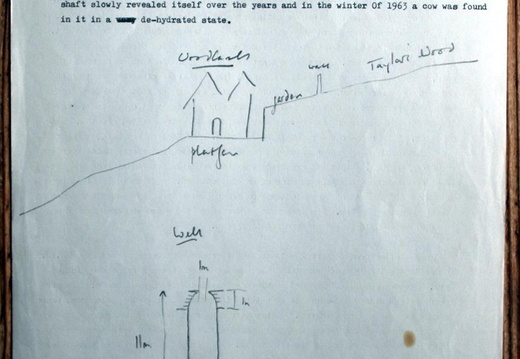 shaft slowly revealed itself over the years and in the winter Of 1963 a cow was found
in it in a de-hydrated state.
Woodlands
wall
Taylors Wood
garden
platform
Well
1m
1m
11m